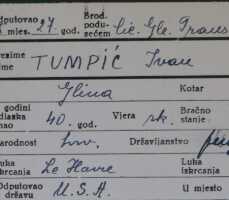 Otputovao mjes. 27. god. Brod. poduzećem Cie. Gle. Trans
rezime me TUMPIĆ Ivan
Glina Kotar
godini laska no 40. god. Vjera rk. Bračno stanje:
arodnost hrv. Državljanstvo
uka krcanja Le Havre Luka iskrcanja
Odputovao državu U.S.A. U mjesto